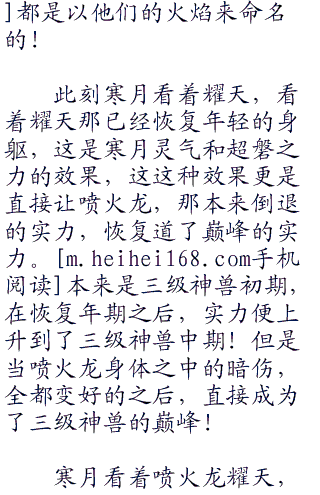 ]都是以他们的火焰来命名
的！
此刻寒月看着耀天，看
着耀天那已经恢复年轻的身
躯，这是寒月灵气和超磐之
力的效果，这这种效果更是
直接让喷火龙，那本来倒退
的实力，恢复道了巅峰的实
力。[m.heihei168.com手机
阅读]本来是三级神兽初期，
在恢复年期之后，实力便上
升到了三级神兽中期！但是
当喷火龙身体之中的暗伤，
全都变好的之后，直接成为
了三级神兽的巅峰！
寒月看着喷火龙耀天，